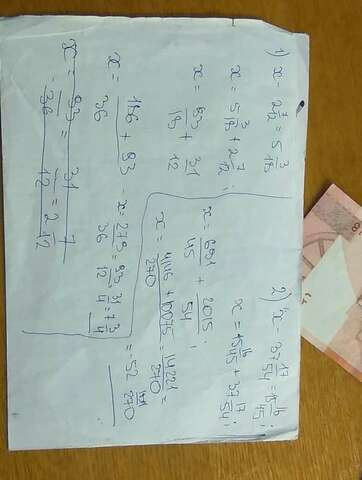 1) x - 2 7/12 = 5 3/18
x = 5 3/18 + 2 7/12;
x = 93/18 + 31/12
x = 186 + 93/36 x = 279/36 = 93/12 = 31/4 = 7 3/4
x = 93/36 = 31/12 = 2 7/12
2) x - 37 17/54 = 15 16/45;
x = 15 16/45 + 37 17/54
x = 691/45 + 2015/54;
x = 4146 + 10075/270 = 14221/270 =
= 52 181/270